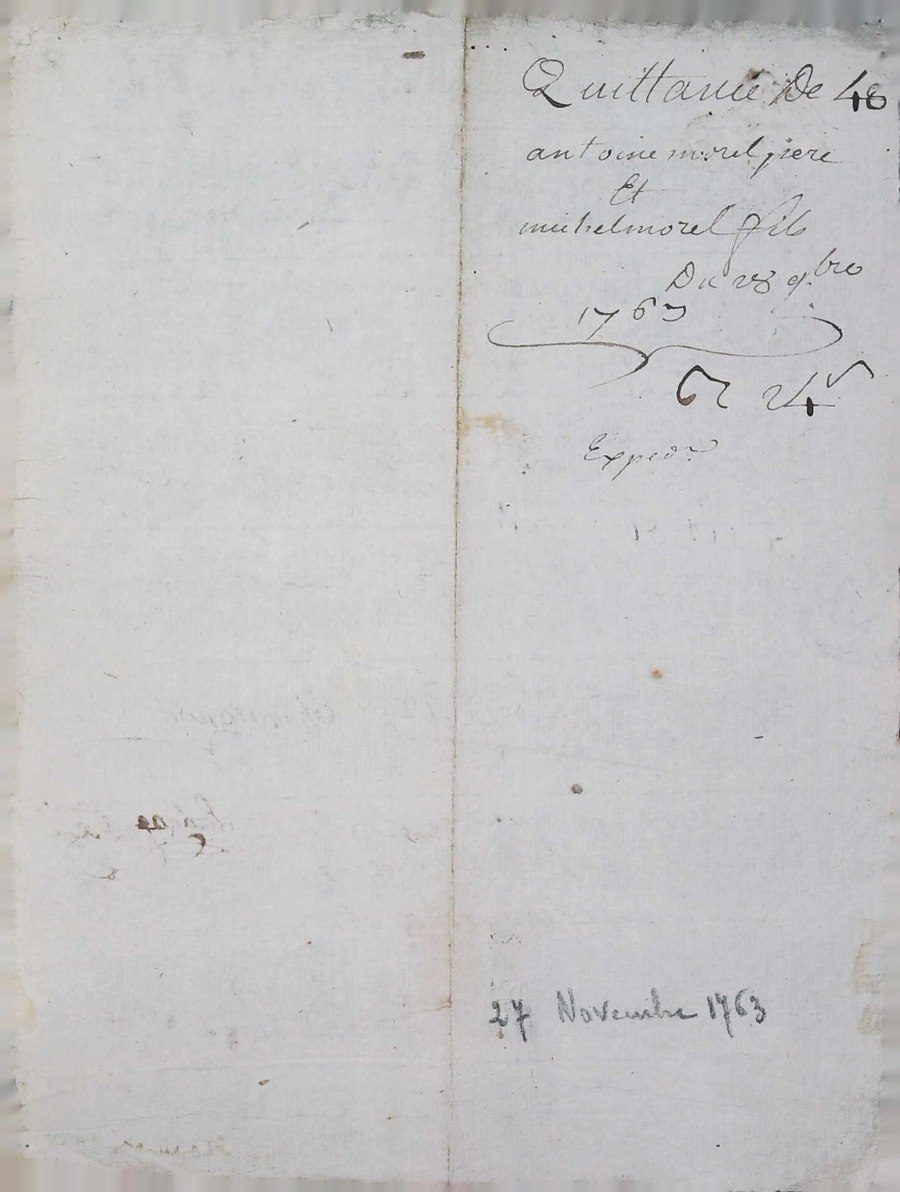 Quittance De 48
antoine morel pere
Et
michel morel fils
Du 28 9bre
1763
Exped
27 Novembre 1763